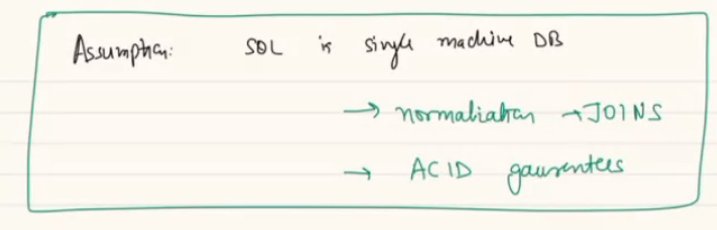 Assumption: SQL is single machine DB
→ normaliation → JOINS
→ ACID gaurentees